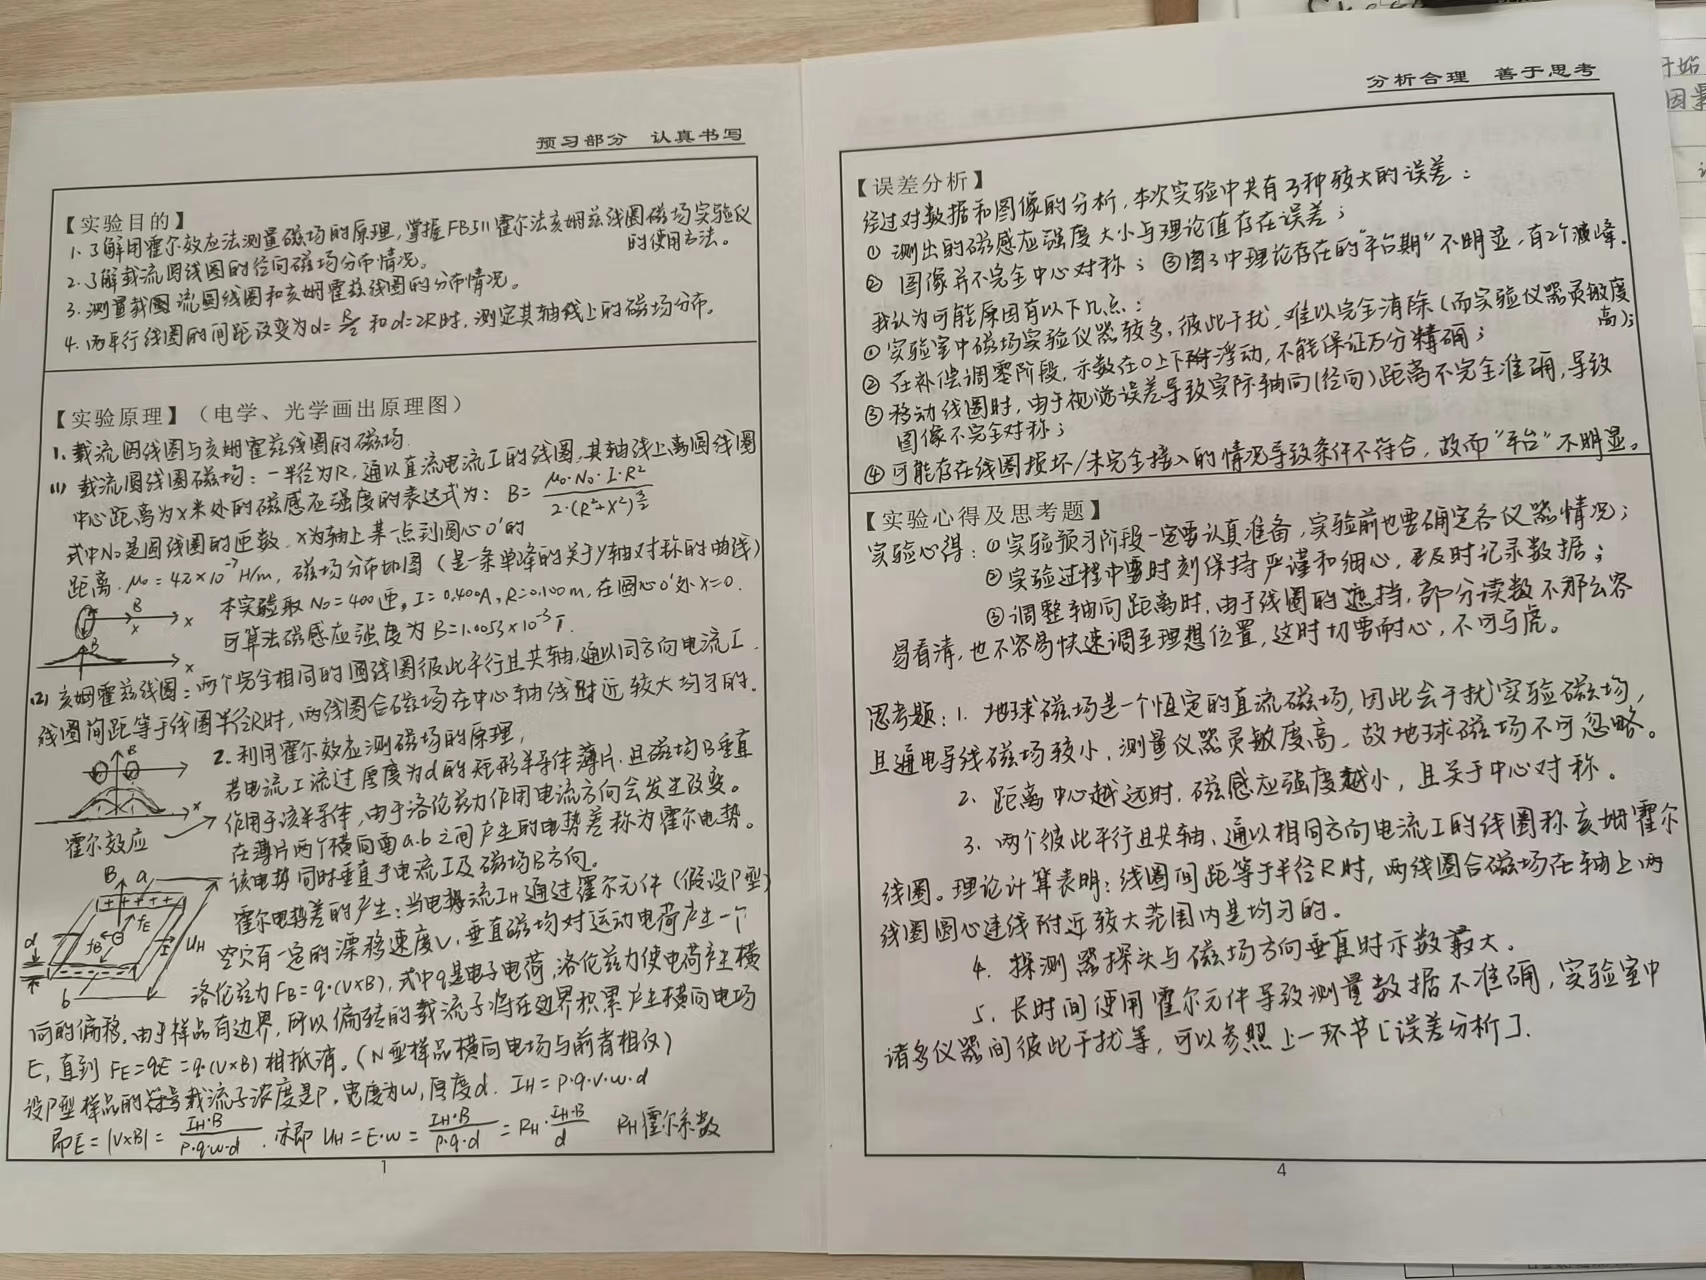 预习部分 认真书写
【实验目的】
1. 了解用霍尔效应法测量磁场的原理,掌握FB511霍尔法亥姆兹线圈磁场实验仪
的使用方法。
2. 了解载流圆线圈的径向磁场分布情况。
3. 测量载流圆线圈和亥姆霍兹线圈的分布情况。
4. 两平行线圈的间距改变为d=R/2和d=2R时,测定其轴线上的磁场分布。
【实验原理】(电学、光学画出原理图)
1. 载流圆线圈与亥姆霍兹线圈的磁场
(1) 载流圆线圈磁场:一半径为R,通以直流电流I的线圈,其轴线上离圆线圈
中心距离为X米处的磁感应强度的表达式为:B= μ0·N0·I·R² / 2·(R²+X²)^3/2
式中N0是圆线圈的匝数,X为轴上某一点到圆心O'的
距离,μ0=4π×10⁻⁷H/m,磁场分布如图(是一条单峰的关于y轴对称的曲线)
本实验取N0=400匝,I=0.400A,R=0.100m,在圆心O'处X=0.
B
x x
可算法磁感应强度为B=1.0053×10⁻³T.
B
x
(2) 亥姆霍兹线圈:两个完全相同的圆线圈彼此平行且共轴,通以同方向电流I.
线圈间距等于线圈半径R时,两线圈合磁场在中心轴线附近较大均匀的.
B
x
2. 利用霍尔效应测磁场的原理,
若电流I流过厚度为d的矩形半导体薄片,且磁场B垂直
作用于该半导体,由于洛伦兹力作用电流方向会发生改变。
霍尔效应
在薄片两个横向面a.b之间产生的电势差称为霍尔电势。
该电势同时垂直于电流I及磁场B方向。
B a
fE
d fB I UH
b
霍尔电势差的产生:当电流IH通过霍尔元件(假设P型)
空穴有一定的漂移速度V,垂直磁场对运动电荷产生一个
洛伦兹力FB=q·(V×B),式中q是电子电荷,洛伦兹力使电荷产生横
向的偏移,由于样品有边界,所以偏转的载流子将在边界积累产生横向电场
E,直到FE=qE=q·(V×B)相抵消。(N型样品横向电场与前者相仪)
设P型样品的载流子浓度是P,宽度为w,厚度d. IH=P·q·v·w·d
即E=|V×B|= IH·B / P·q·w·d . 亦即 UH=E·w= IH·B / P·q·d = RH· IH·B / d RH霍尔系数
1
分析合理 善于思考
【误差分析】
经过对数据和图像的分析,本次实验中共有3种较大的误差:
① 测出的磁感应强度大小与理论值存在误差;
② 图像并不完全中心对称;③图3中理论存在的"平台期"不明显,有2个波峰.
我认为可能原因有以下几点:
① 实验室中磁场实验仪器较多,彼此干扰,难以完全消除(而实验仪器灵敏度
高);
② 在补偿调零阶段,示数在0上下浮动,不能保证万分精确;
③ 移动线圈时,由于视觉误差导致实际轴向(径向)距离不完全准确,导致
图像不完全对称;
④ 可能存在线圈损坏/未完全接入的情况导致条件不符合,故而"平台"不明显。
【实验心得及思考题】
实验心得:①实验预习阶段一定要认真准备,实验前也要确定各仪器情况;
②实验过程中要时刻保持严谨和细心,要及时记录数据;
③调整轴向距离时,由于线圈的遮挡,部分读数不那么容
易看清,也不容易快速调至理想位置,这时切要耐心,不可马虎。
思考题:1. 地球磁场是一个恒定的直流磁场,因此会干扰实验磁场,
且通电导线磁场较小,测量仪器灵敏度高,故地球磁场不可忽略。
2. 距离中心越远时,磁感应强度越小,且关于中心对称。
3. 两个彼此平行且共轴、通以相同方向电流I的线圈称亥姆霍尔
线圈。理论计算表明:线圈间距等于半径R时,两线圈合磁场在轴上两
线圈圆心连线附近较大范围内是均匀的。
4. 探测器探头与磁场方向垂直时示数最大。
5. 长时间使用霍尔元件导致测量数据不准确,实验室中
诸多仪器间彼此干扰等,可以参照上一环节[误差分析].
4